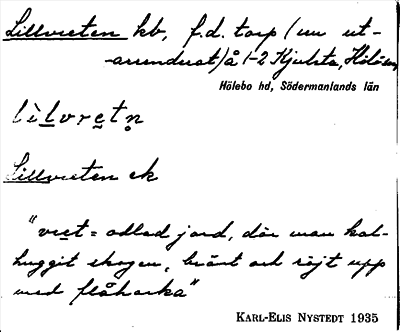 Lillvreten kb, f.d. torp (nu ut-
arrenderat) å 1-2 Kjulsta, Hölö sn,
Hölebo hd, Södermanlands län
lìlvretn̥
Lillvreten ek
"vret = odlad jord, där man kal-
huggit skogen, bränt och röjt upp
med flåhacka"
KARL-ELIS NYSTEDT 1935